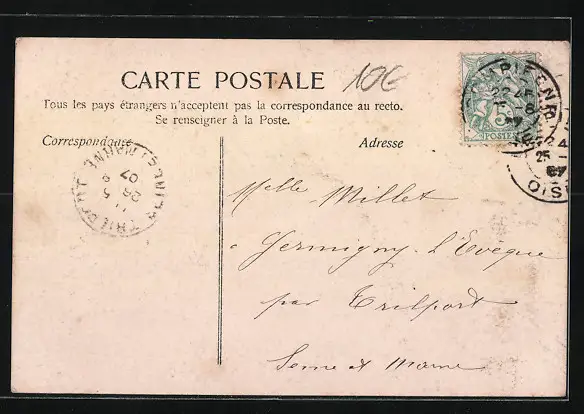 CARTE POSTALE
10€
Tous les pays étrangers n'acceptent pas la correspondance au recto.
Se renseigner à la Poste.
Correspondance
Adresse
POSTES
OISE
TRILPORT
SEINE ET MARNE
26
07
Melle Millet
à Germigny-l'Evêque
par Trilport
Seine et Marne